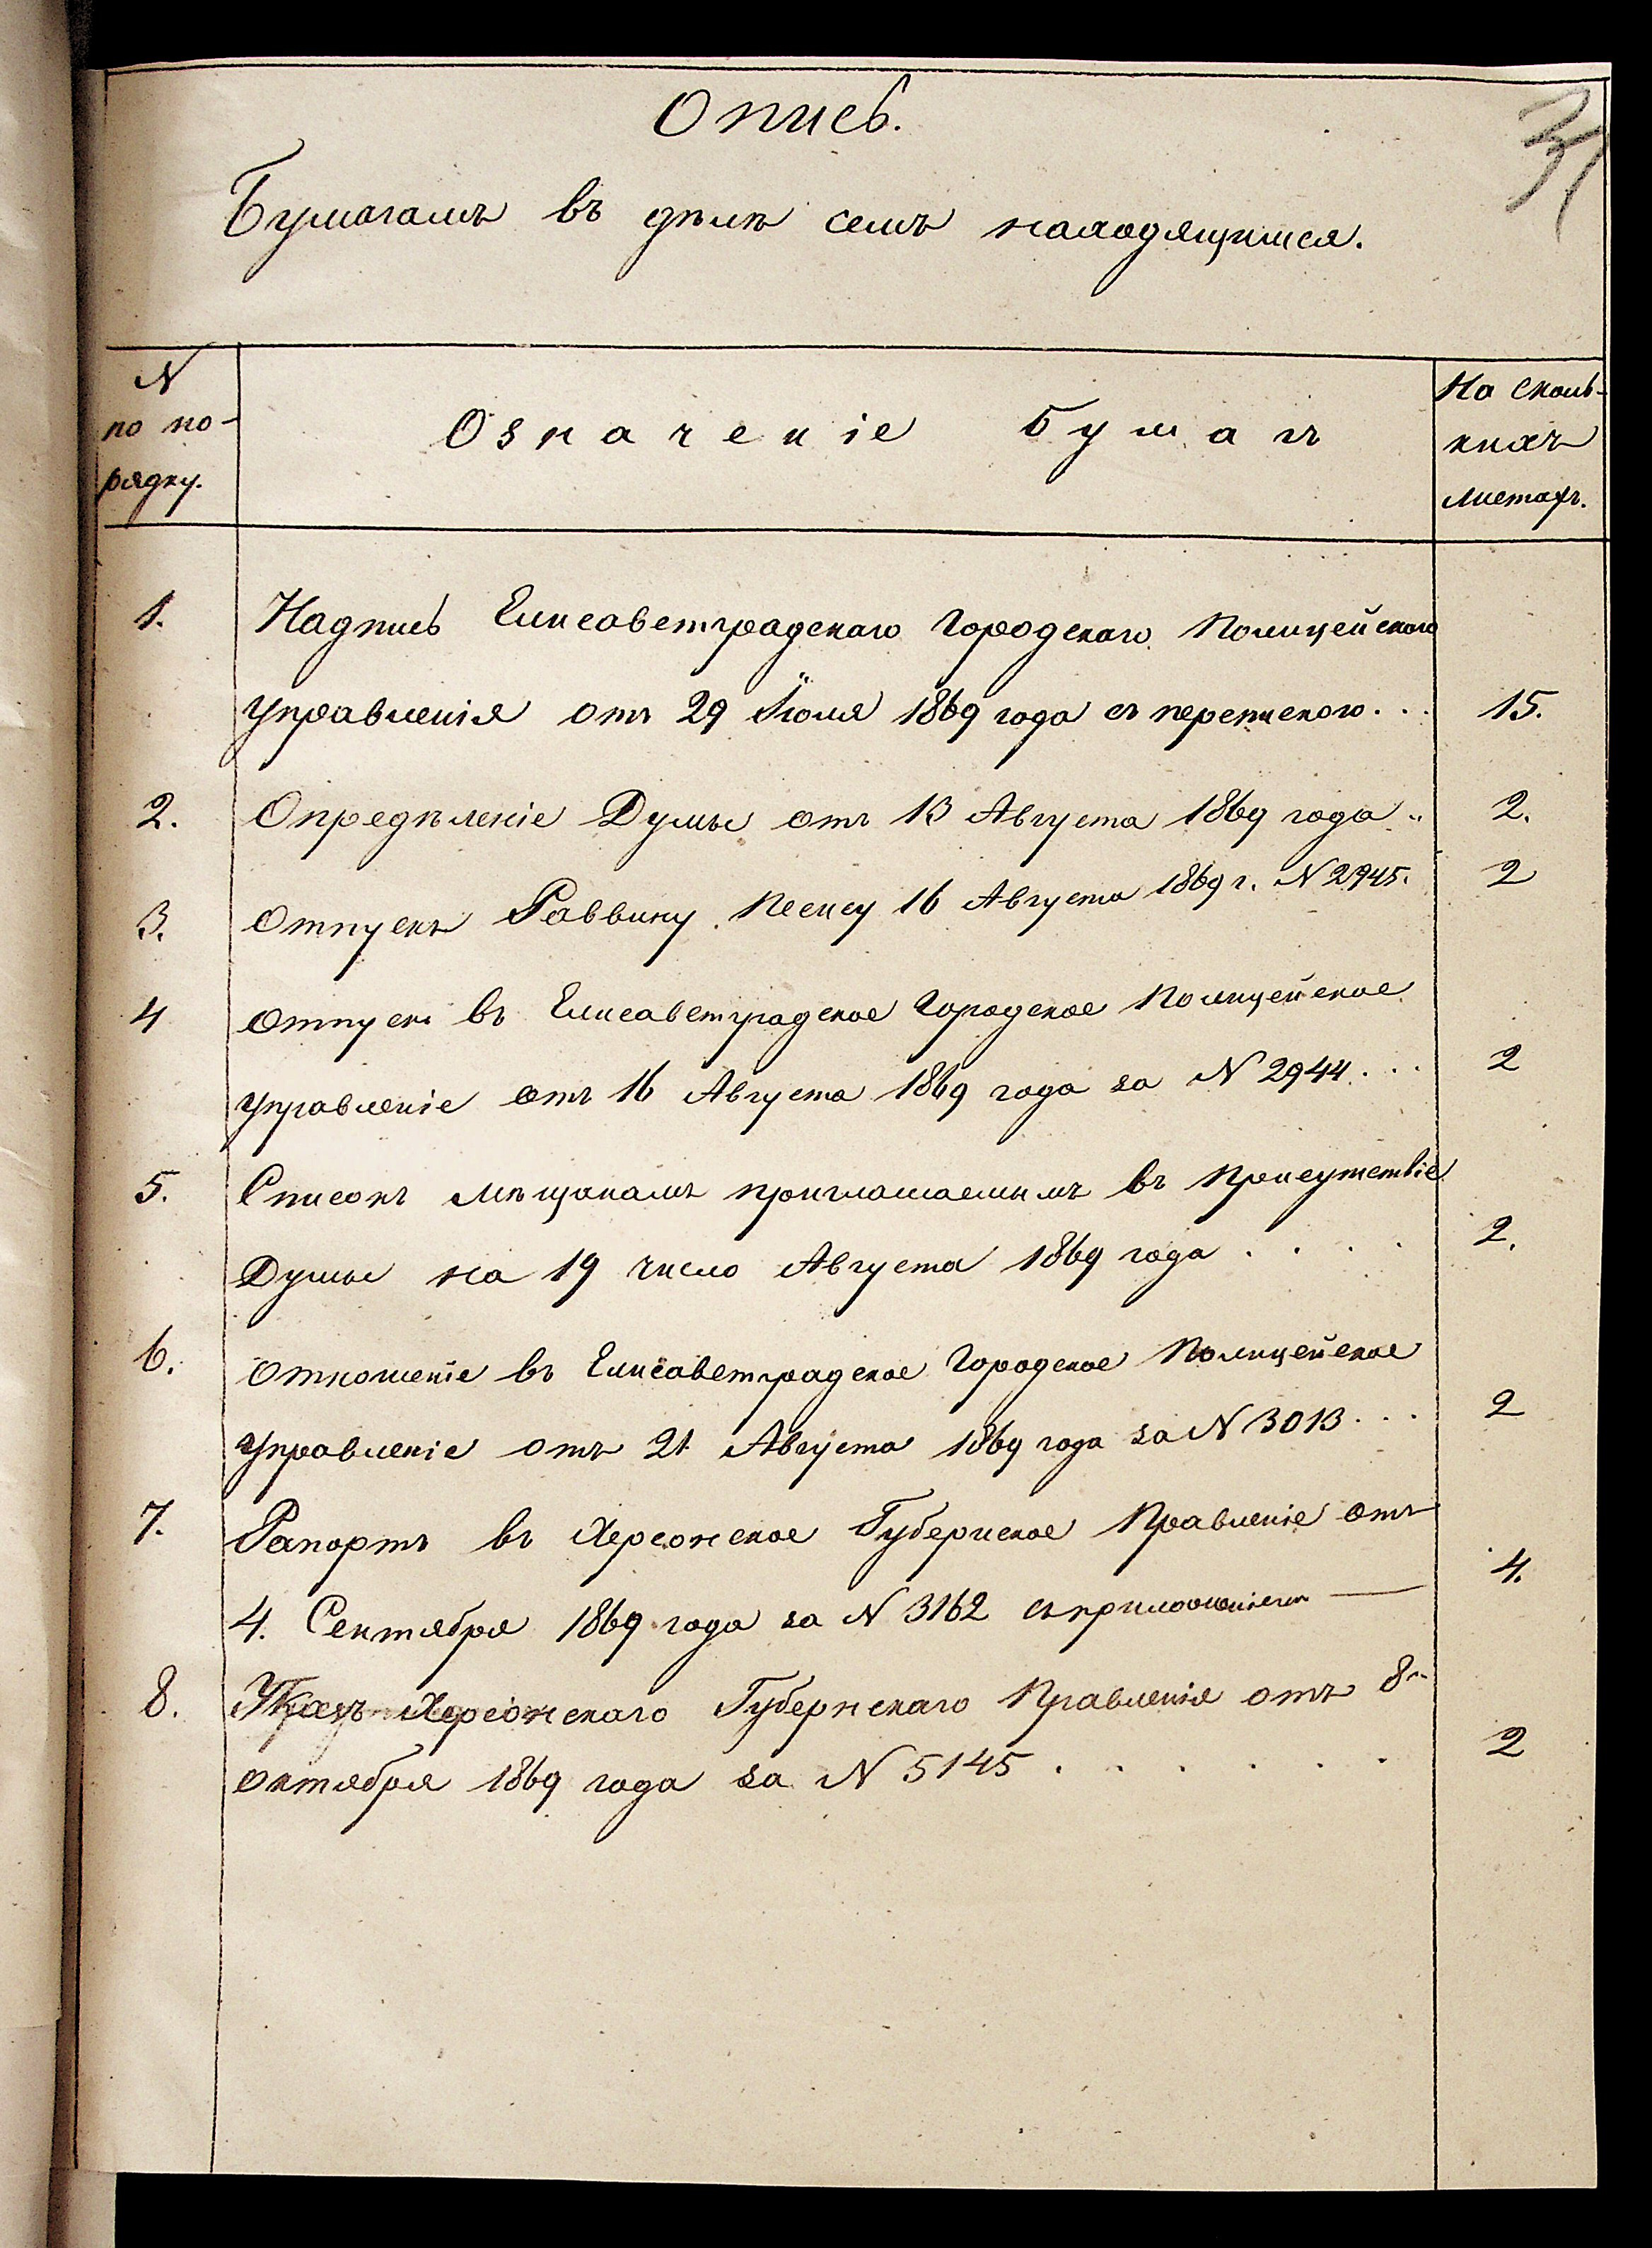 Опись.
31
Бумагамъ въ дѣлѣ семъ находящимся.
N
по по-
рядку.
Означеніе бумагъ
На сколь-
кихъ
листахъ.
1. Надпись Елисаветградскаго Городскаго Полицейскаго
управленія отъ 29 Іюля 1869 года съ перепискою... 15.
2. Опредѣленіе Думы отъ 13 Августа 1869 года.. 2.
3. Отпускъ Раввину 16 Августа 1869 г. N 2945. 2
4 Отпускъ въ Елисаветградское Городское Полицейское
управленіе отъ 16 Августа 1869 года за N 2944.... 2
5. Списокъ мѣщанамъ приглашаемымъ въ Присутствіе
Думы на 19 число Августа 1869 года . . . . 2.
6. Отношеніе въ Елисаветградское Городское Полицейское
управленіе отъ 21 Августа 1869 года за N 3013... 2
7. Рапортъ въ Херсонское Губернское Правленіе отъ
4. Сентября 1869 года за N 3162 съ приложеніемъ — 4.
8. Указъ Херсонскаго Губернскаго Правленія отъ 8
октября 1869 года за N 5145 . . . . . . 2